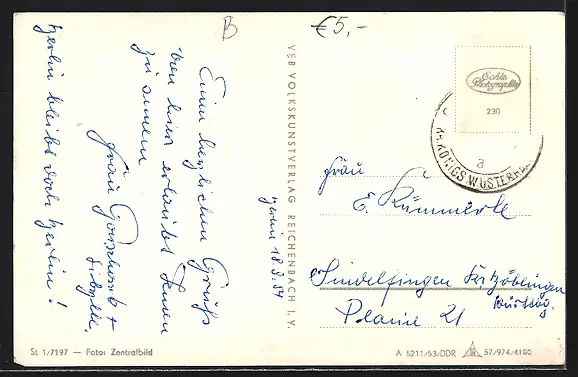 B
€5,-
Echte
Photographie
230
KR. KÖNIGS WUSTERHA
a
Einen herzlichen Gruß
von hier erlaubt Ihnen
zu senden
Frau
Sibylle.
Berlin bleibt doch Berlin!
VEB VOLKSKUNSTVERLAG REICHENBACH I. V.
18.8.54
Frau
E. Kümmerle
Sindelfingen Krs. Böblingen
Württbg.
Planie 21
St 1/7197 — Foto: Zentralbild
A 5211/53/DDR 57/974/4100